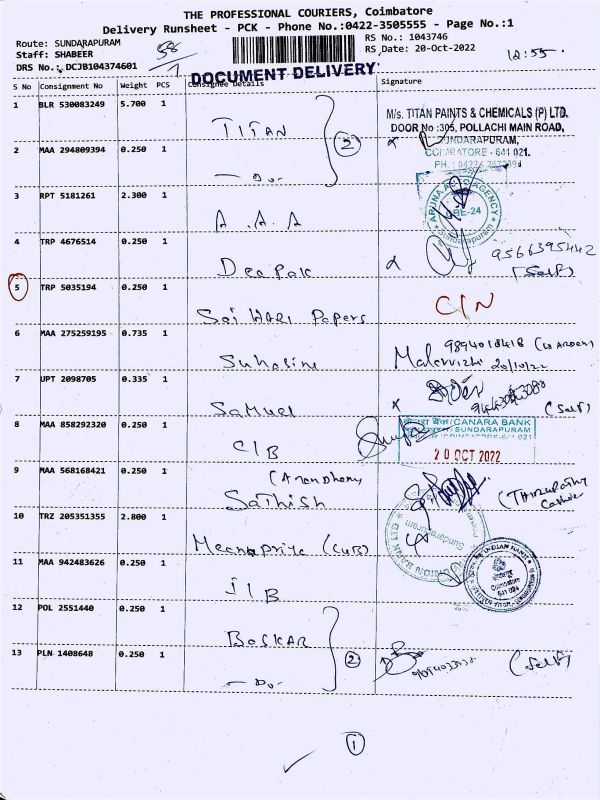 THE PROFESSIONAL COURIERS, Coimbatore
Delivery Runsheet - PCK - Phone No.:0422-3505555 - Page No.:1
Route: SUNDARAPURAM
Staff: SHABEER
DRS No.: DCJB104374601
RS No.: 1043746
RS Date: 20-Oct-2022
12:55
DOCUMENT DELIVERY
S No Consignment No Weight PCS Consignee Details Signature
1 BLR 530083249 5.700 1 TITAN
M/s. TITAN PAINTS & CHEMICALS (P) LTD.
DOOR No :305, POLLACHI MAIN ROAD,
SUNDARAPURAM,
COIMBATORE - 641 021.
2 MAA 294809394 0.250 1 — Do —
2
3 RPT 5181261 2.300 1 A. A. A
ARUNA AGENCY
Sundarapuram
4 TRP 4676514 0.250 1 Deepak 9566395442
(Self)
5 TRP 5035194 0.250 1 Sai HARI Papers C/N
6 MAA 275259195 0.735 1 Suhasini 9894018418 (WARDEN)
20/10/22
7 UPT 2098705 0.335 1 Samuel (Self)
8 MAA 858292320 0.250 1 C/B
CANARA BANK
SUNDARAPURAM
COIMBATORE-641 021
20 OCT 2022
9 MAA 568168421 0.250 1 Sathish
10 TRZ 205351355 2.800 1 Meenapriya (CUB)
11 MAA 942483626 0.250 1 I/B
INDIAN BANK
12 POL 2551440 0.250 1 BOSKAR
13 PLN 1408648 0.250 1 — Do — (Self)
2
1